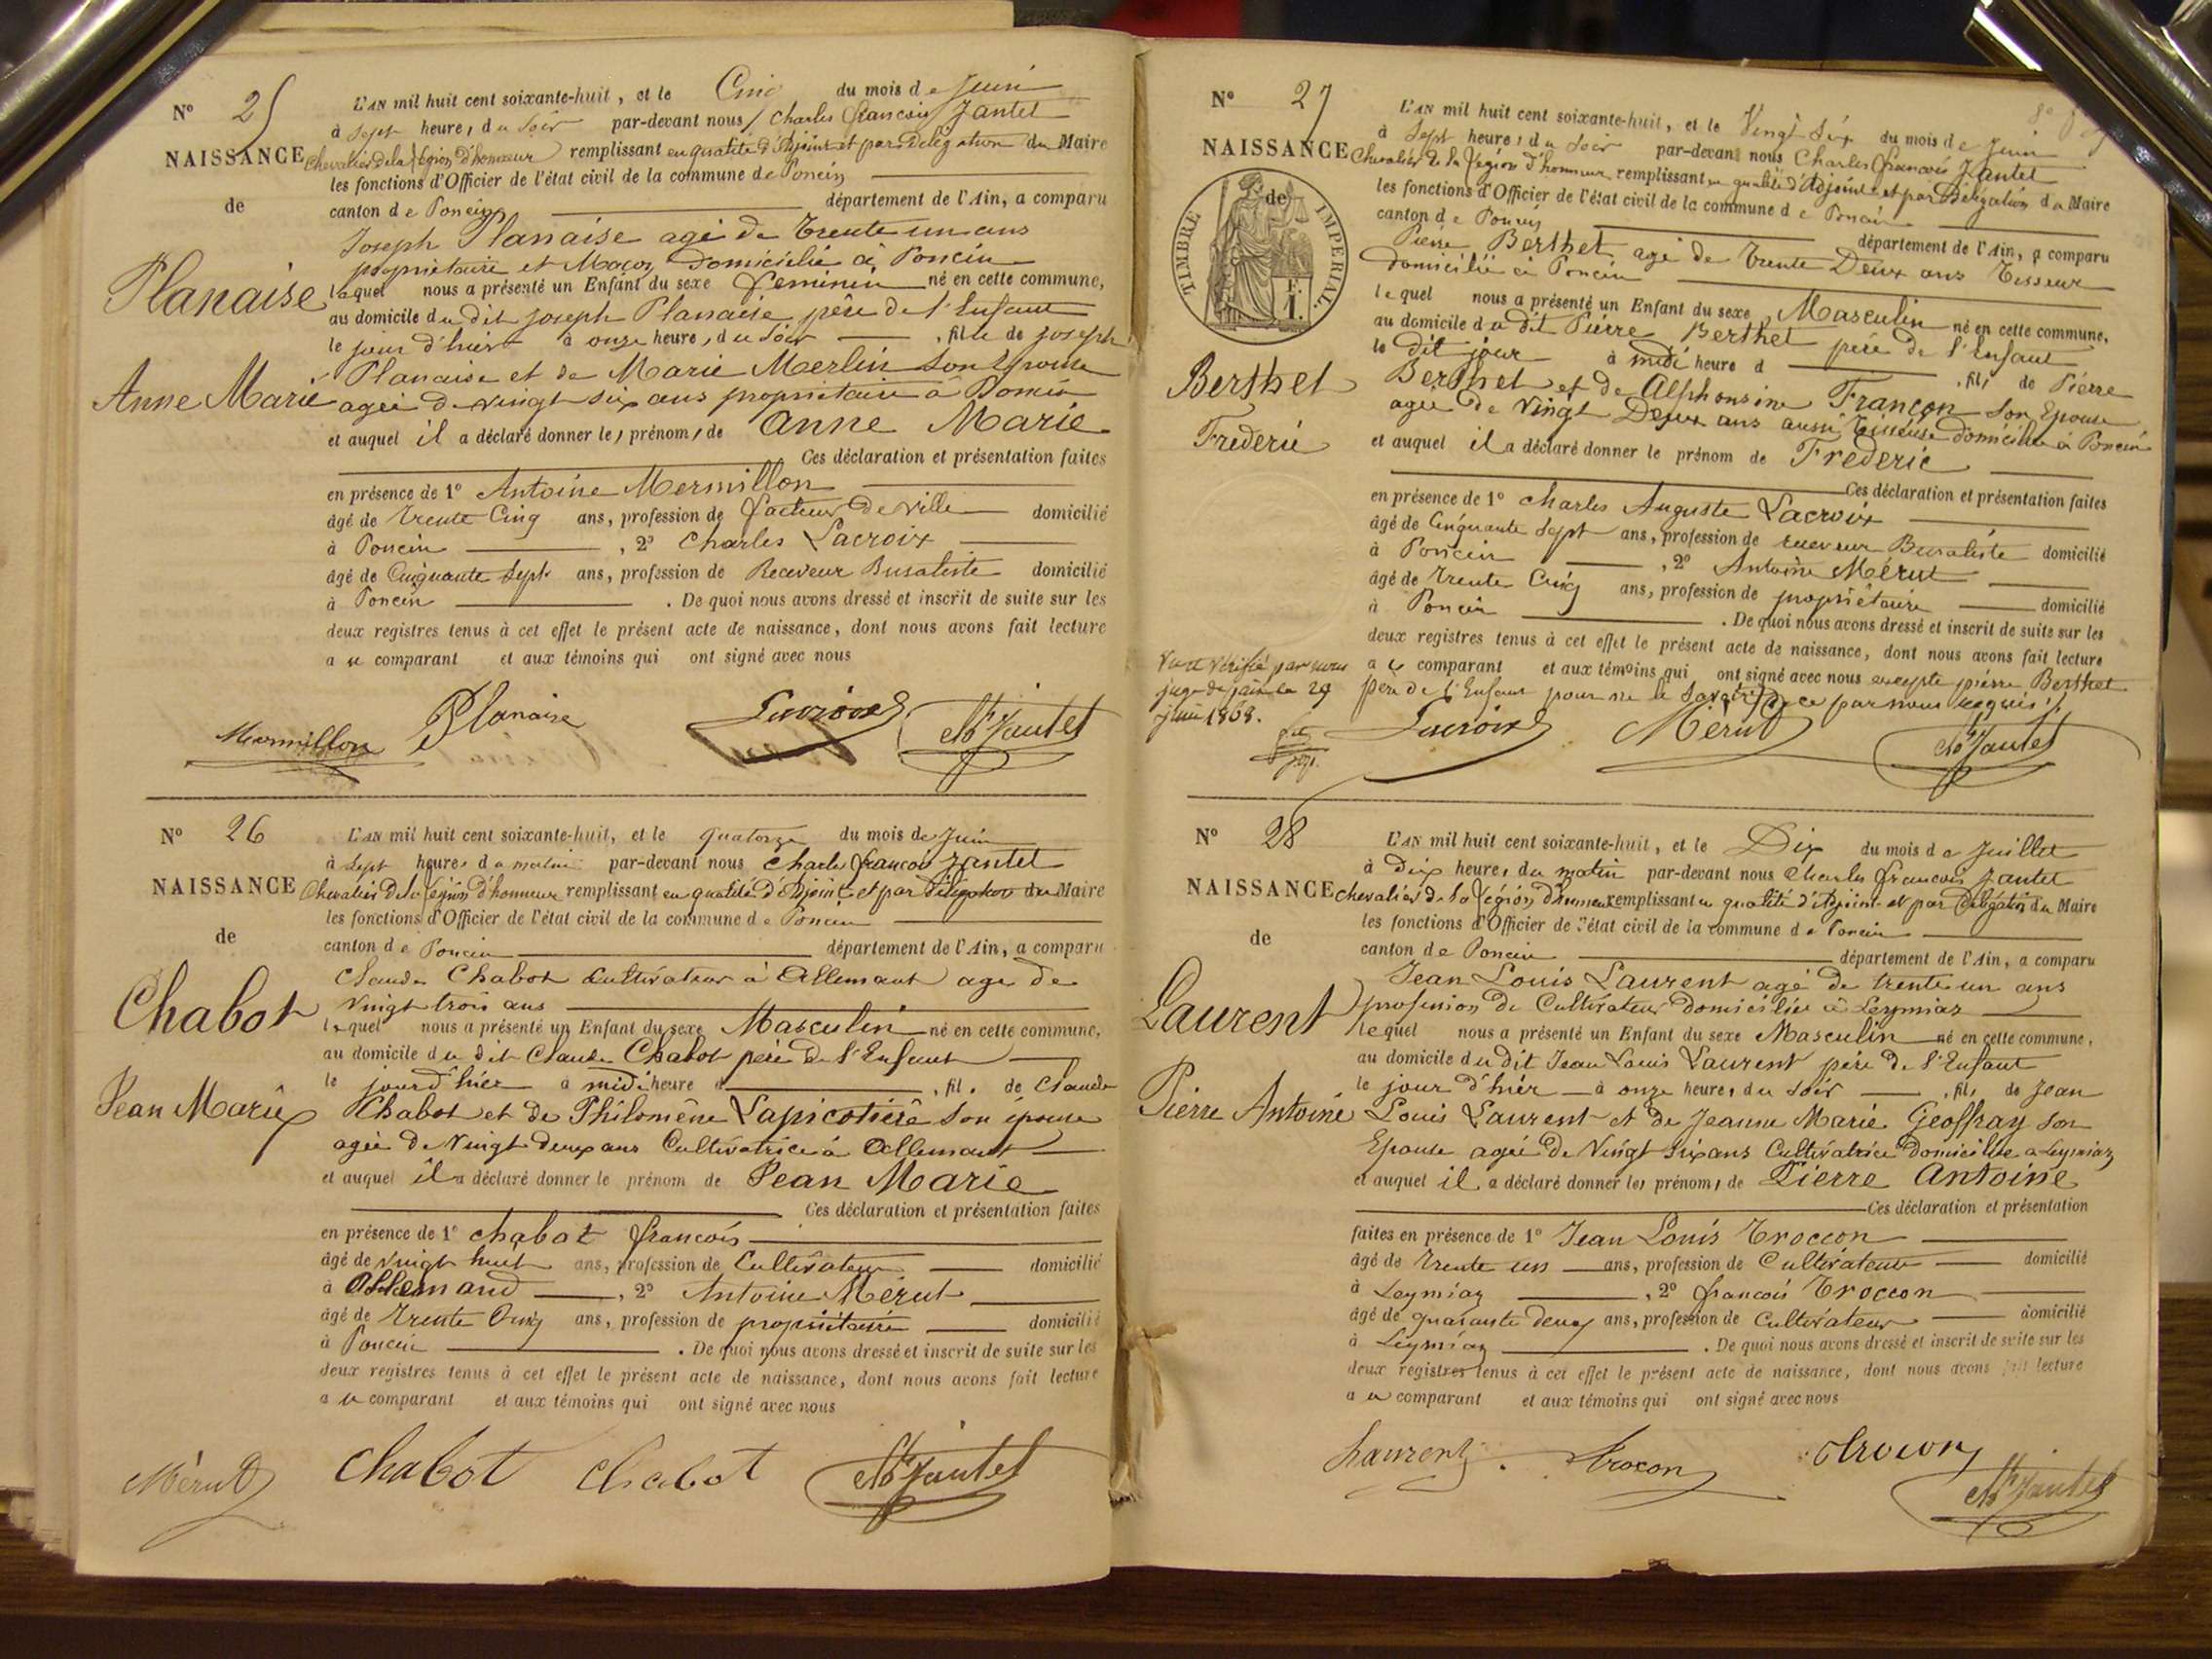 N° 25
NAISSANCE
de
Planaise
Anne Marie
L'AN mil huit cent soixante-huit, et le Cinq du mois de Juin
à Sept heures du Soir par-devant nous Charles françois Jantet
Chevalier de la légion d'honneur remplissant en qualité d'adjoint et par Délégation du Maire
les fonctions d'Officier de l'état civil de la commune de Poncin
canton de Poncin département de l'Ain, a comparu
Joseph Planaise agé de trente un ans
propriétaire et Maçon Domicilié à Poncin
lequel nous a présenté un Enfant du sexe feminin né en cette commune,
au domicile du dit Joseph Planaise père de l'Enfant
le jour d'hier à onze heure, du Soir, fille de Joseph
Planaise et de Marie Merlin son Epouse
agée de vingt six ans propriétaire à Poncin
et auquel il a déclaré donner les prénoms de Anne Marie
Ces déclaration et présentation faites
en présence de 1° Antoine Mermillon
âgé de trente Cinq ans, profession de facteur de ville domicilié
à Poncin, 2° Charles Lacroix
âgé de Cinquante Sept ans, profession de Receveur Buraliste domicilié
à Poncin. De quoi nous avons dressé et inscrit de suite sur les
deux registres tenus à cet effet le présent acte de naissance, dont nous avons fait lecture
au comparant et aux témoins qui ont signé avec nous
Mermillon Planaise Lacroix Jantet
N° 26
NAISSANCE
de
Chabot
Jean Marie
L'AN mil huit cent soixante-huit, et le quatorze du mois de Juin
à Sept heures du matin par-devant nous Charles françois Jantet
Chevalier de la légion d'honneur remplissant en qualité d'adjoint et par Délégation du Maire
les fonctions d'Officier de l'état civil de la commune de Poncin
canton de Poncin département de l'Ain, a comparu
Claude Chabot Cultivateur à Allemant age de
vingt trois ans
lequel nous a présenté un Enfant du sexe Masculin né en cette commune,
au domicile du dit Claude Chabot père de l'Enfant
le jour d'hier à midi heure d, fil. de Claude
Chabot et de Philomène Lapicotière son épouse
agée de vingt deux ans Cultivatrice à Allemant
et auquel il a déclaré donner le prénom de Jean Marie
Ces déclaration et présentation faites
en présence de 1° Chabot françois
âgé de vingt huit ans, profession de Cultivateur domicilié
à Allemand, 2° Antoine Mérut
âgé de trente Cinq ans, profession de propriétaire domicilié
à Poncin. De quoi nous avons dressé et inscrit de suite sur les
deux registres tenus à cet effet le présent acte de naissance, dont nous avons fait lecture
au comparant et aux témoins qui ont signé avec nous
Mérut Chabot Chabot Jantet
N° 27
NAISSANCE
de
TIMBRE IMPERIAL
F. 1.
Berthet
Frederic
L'AN mil huit cent soixante-huit, et le Vingt Six du mois de Juin
à Sept heures du Soir par-devant nous Charles françois Jantet
Chevalier de la légion d'honneur remplissant en qualité d'Adjoint et par Délégation du Maire
les fonctions d'Officier de l'état civil de la commune de Poncin
canton de Poncin département de l'Ain, a comparu
Pierre Berthet agé de trente Deux ans Tisseur
domicilié à Poncin
lequel nous a présenté un Enfant du sexe Masculin né en cette commune,
au domicile du dit Pierre Berthet père de l'Enfant
le dit jour à midi heure d, fils de Pierre
Berthet et de Alphonsine Françon Son Epouse
agée de vingt Deux ans aussi tisseuse domiciliée à Poncin
et auquel il a déclaré donner le prénom de Frederic
Ces déclaration et présentation faites
en présence de 1° Charles Auguste Lacroix
âgé de Cinquante Sept ans, profession de receveur Buraliste domicilié
à Poncin, 2° Antoine Mérut
âgé de trente Cinq ans, profession de propriétaire domicilié
à Poncin. De quoi nous avons dressé et inscrit de suite sur les
deux registres tenus à cet effet le présent acte de naissance, dont nous avons fait lecture
au comparant et aux témoins qui ont signé avec nous excepté pierre Berthet
père de l'Enfant pour ne le savoir de ce par nous requis
Vu et Vérifié par nous
juge de paix le 29
juin 1868.
Lacroix Mérut Jantet
N° 28
NAISSANCE
de
Laurent
Pierre Antoine
L'AN mil huit cent soixante-huit, et le Dix du mois de Juillet
à Dix heures du matin par-devant nous Charles françois Jantet
chevalier de la légion d'honneur remplissant en qualité d'Adjoint et par Délégation du Maire
les fonctions d'Officier de l'état civil de la commune de Poncin
canton de Poncin département de l'Ain, a comparu
Jean Louis Laurent agé de trente un ans
profession de Cultivateur domicilié à Leymiaz
lequel nous a présenté un Enfant du sexe Masculin né en cette commune,
au domicile du dit Jean Louis Laurent père de l'Enfant
le jour d'hier à onze heures du Soir, fils de Jean
Louis Laurent et de Jeanne Marie Geoffray son
Epouse agée de Vingt Six ans Cultivatrice domiciliée a Leymiaz
et auquel il a déclaré donner les prénoms de Pierre Antoine
Ces déclaration et présentation
faites en présence de 1° Jean Louis Troccon
âgé de trente un ans, profession de Cultivateur domicilié
à Leymiaz, 2° françois Troccon
âgé de quarante deux ans, profession de Cultivateur domicilié
à Leymiaz. De quoi nous avons dressé et inscrit de suite sur les
deux registres tenus à cet effet le présent acte de naissance, dont nous avons fait lecture
au comparant et aux témoins qui ont signé avec nous
Laurent Trocon Trocon Jantet